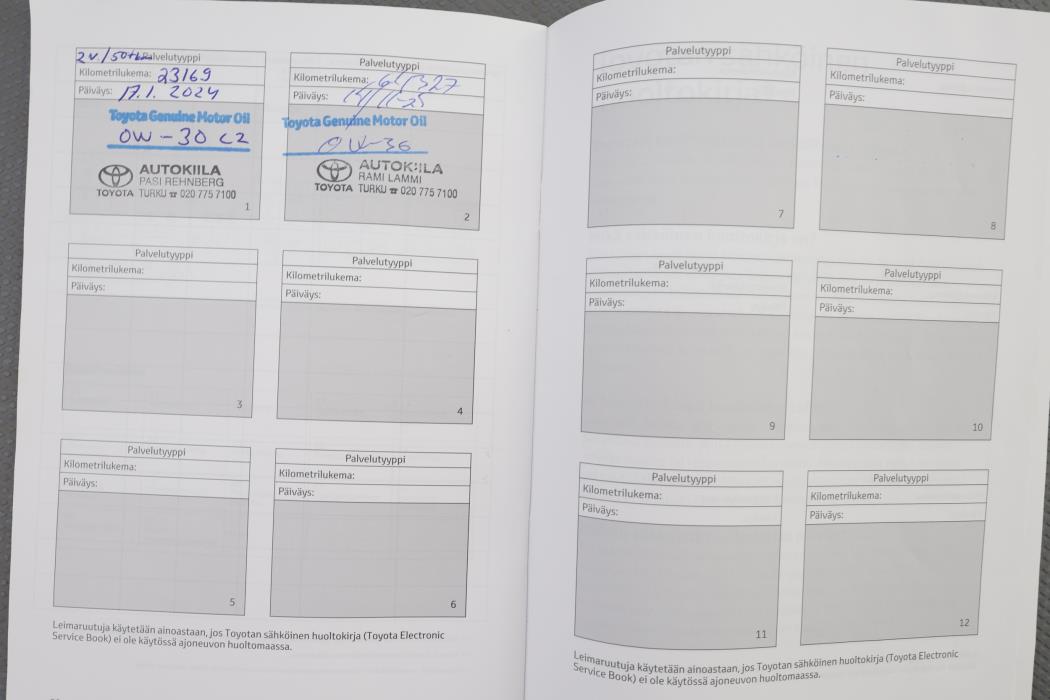 2v./50tkm Palvelutyyppi
Kilometrilukema: 23169
Päiväys: 17.1. 2024
Toyota Genuine Motor Oil
0W-30 C2
AUTOKIILA
PASI REHNBERG
TOYOTA TURKU ☎ 020 775 7100
1
Palvelutyyppi
Kilometrilukema:
Päiväys:
Toyota Genuine Motor Oil
AUTOKIILA
RAMI LAMMI
TOYOTA TURKU ☎ 020 775 7100
2
Palvelutyyppi
Kilometrilukema:
Päiväys:
3
Palvelutyyppi
Kilometrilukema:
Päiväys:
4
Palvelutyyppi
Kilometrilukema:
Päiväys:
5
Palvelutyyppi
Kilometrilukema:
Päiväys:
6
Leimaruutuja käytetään ainoastaan, jos Toyotan sähköinen huoltokirja (Toyota Electronic
Service Book) ei ole käytössä ajoneuvon huoltomaassa.
Palvelutyyppi
Kilometrilukema:
Päiväys:
7
Palvelutyyppi
Kilometrilukema:
Päiväys:
8
Palvelutyyppi
Kilometrilukema:
Päiväys:
9
Palvelutyyppi
Kilometrilukema:
Päiväys:
10
Palvelutyyppi
Kilometrilukema:
Päiväys:
11
Palvelutyyppi
Kilometrilukema:
Päiväys:
12
Leimaruutuja käytetään ainoastaan, jos Toyotan sähköinen huoltokirja (Toyota Electronic
Service Book) ei ole käytössä ajoneuvon huoltomaassa.